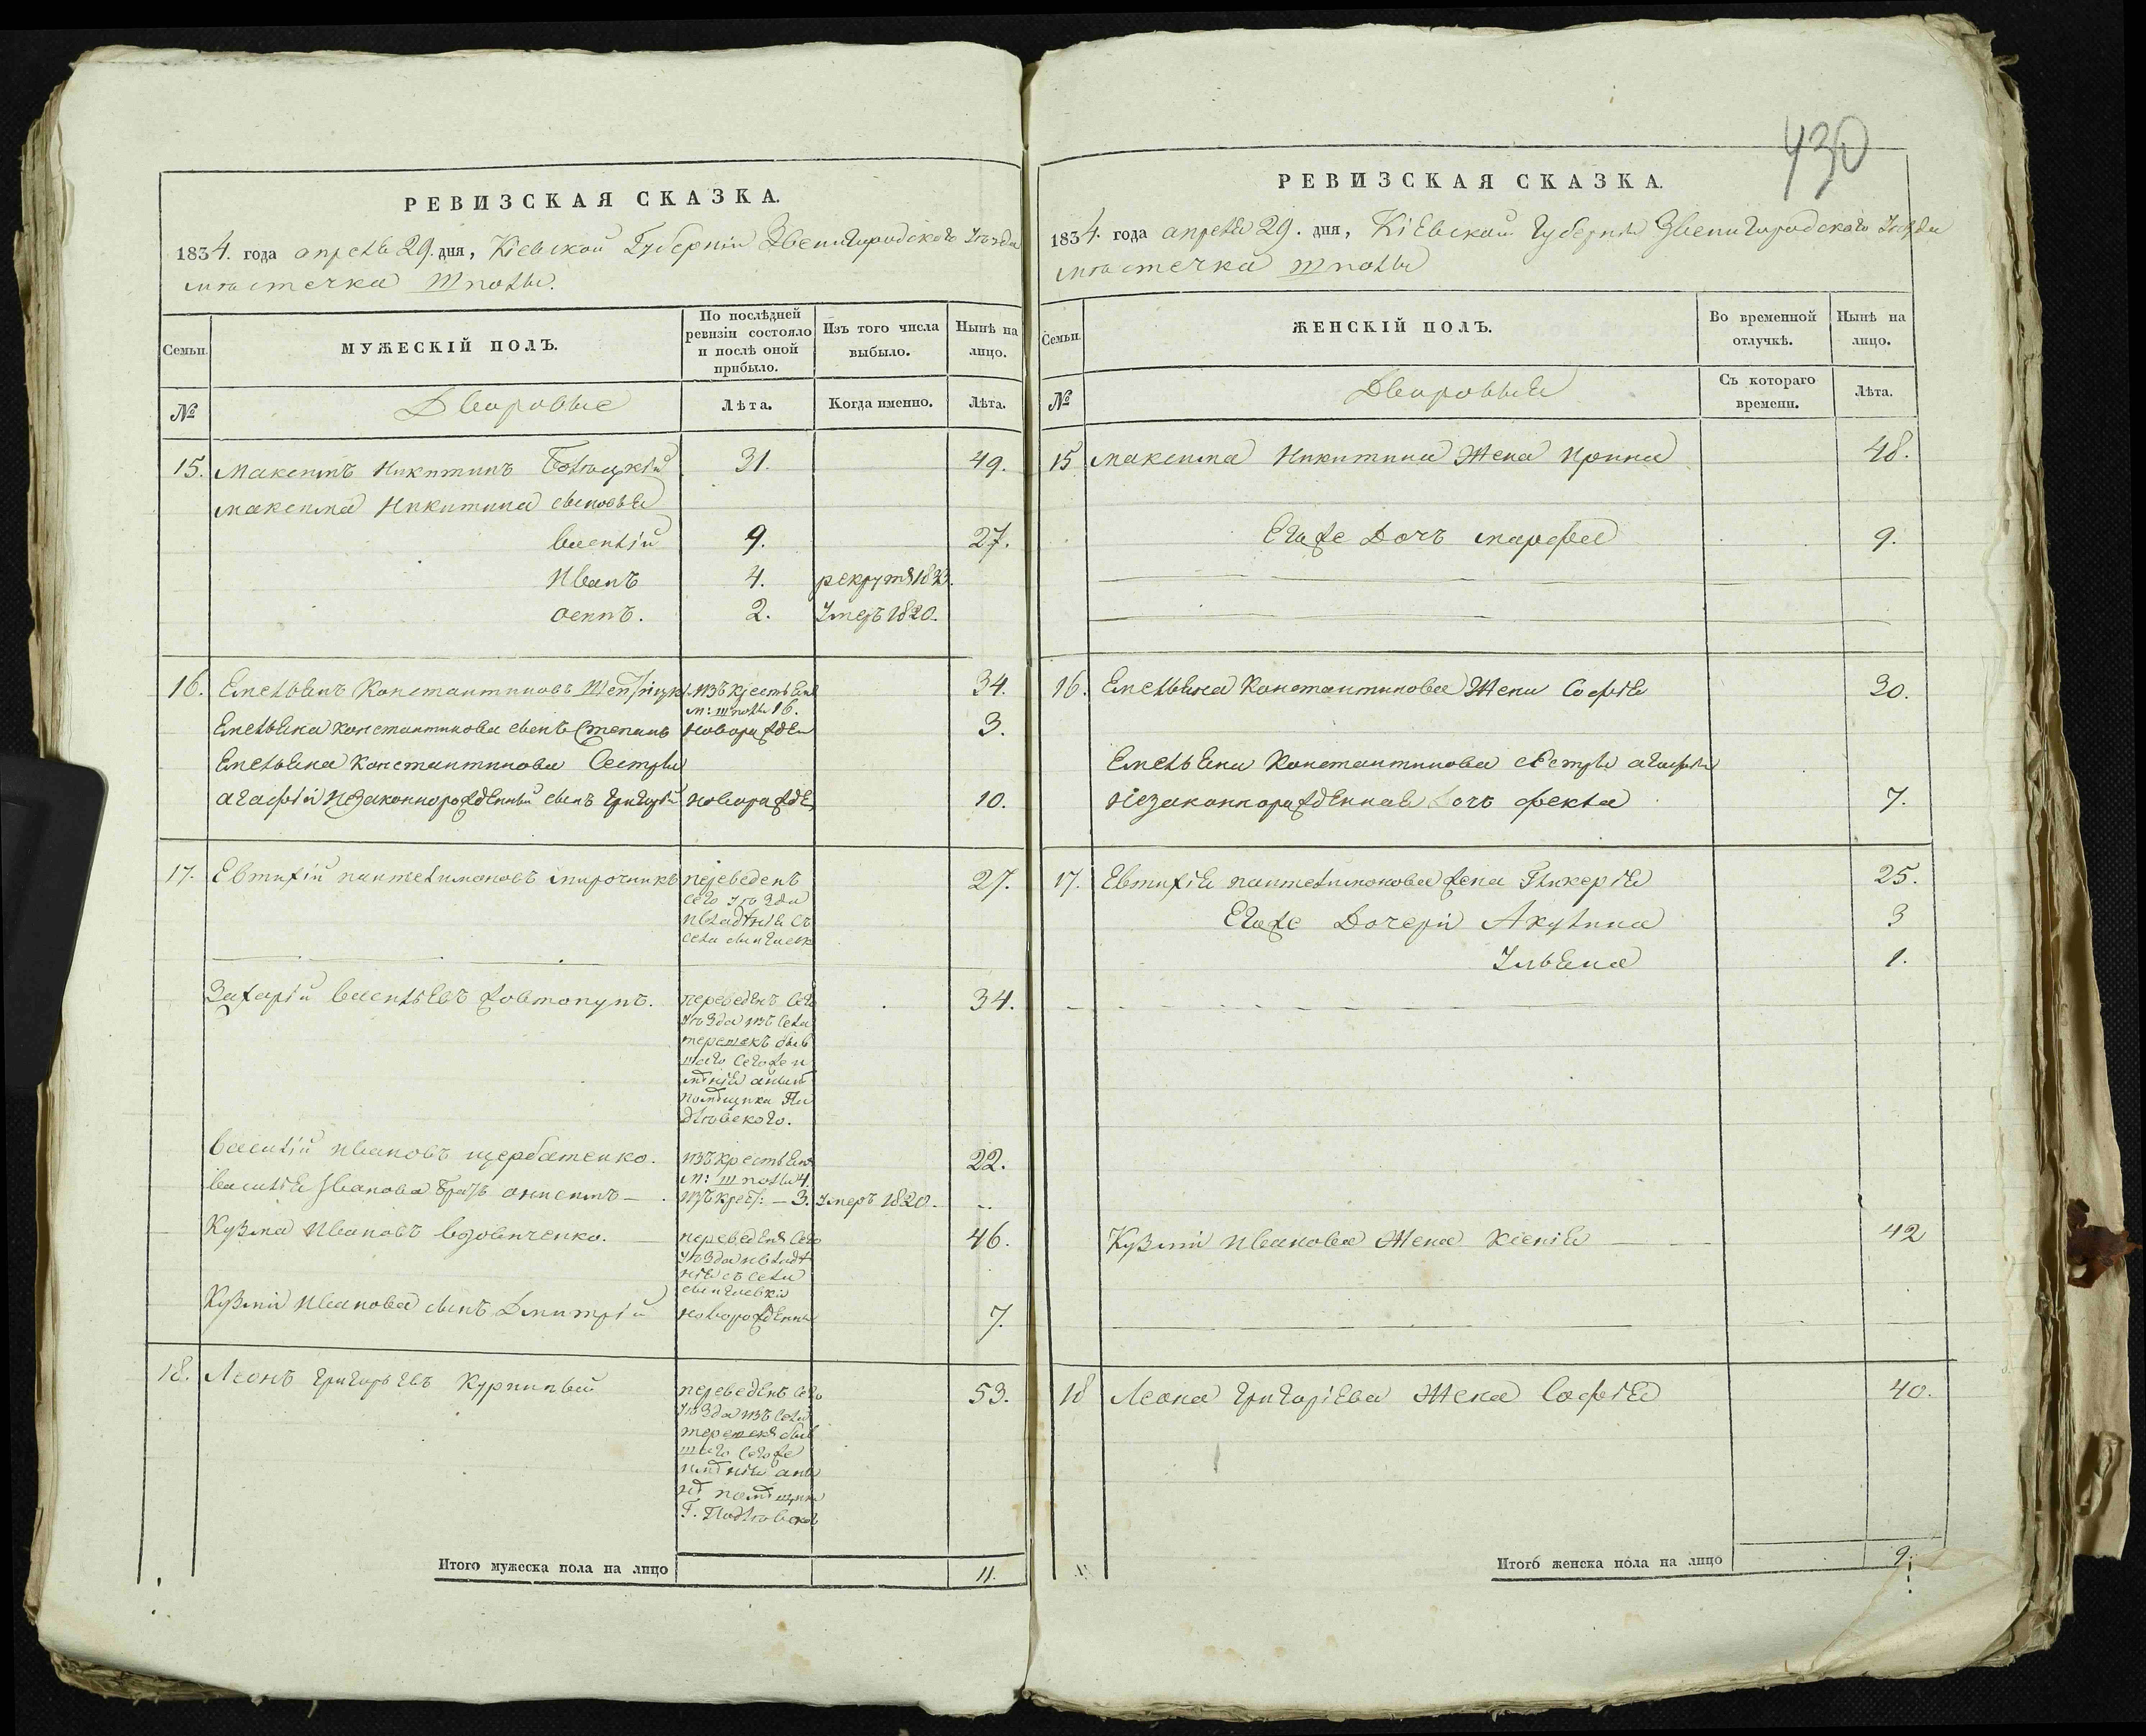 430
РЕВИЗСКАЯ СКАЗКА.
1834. года апреля 29. дня, Кіевской Губерніи Звенигородского Уѣзда
мѣстечка Шполы.
Семьи.
МУЖЕСКІЙ ПОЛЪ.
По послѣдней ревизіи состояло и послѣ оной прибыло.
Изъ того числа выбыло.
Нынѣ на лицо.
№
Дворовые
Лѣта.
Когда именно.
Лѣта.
15. Максимъ Никитинъ 31. 49.
Максима Никитина сыновья
Василій 9. 27.
Иванъ 4. рекрутъ 1833.
Осипъ. 2. Умеръ 1820.
16. Емельянъ Константиновъ изъ крестьян 34.
м: Шполы 16.
Емельяна Константинова сынъ Степанъ новорожден 3.
Емельяна Константинова Сестры
Агафіи незаконнорожденный сынъ Григорій новорожде 10.
17. Евтихій Пантелимоновъ Мирочникъ переведенъ 27.
сего уѣзда
и владѣнія съ
села
Захарій Васильевъ Довтопупъ. переведенъ сего 34.
уѣзда изъ села
Терешекъ быв
шаго сегоже и
мѣнія а нынѣ
помѣщика По
дловского.
Василій Ивановъ Щербатенко. изъ крестьянъ 22.
м: Шполы 4.
Василія Иванова братъ Онисимъ — изъ крест: — 3. Умеръ 1820. —
Кузма Ивановъ Вдовиченко. переведенъ сего 46.
уѣзда и владѣ
нія съ села
Кузмы Иванова сынъ Дмитрій новорожденны 7.
18. Леонъ Григорьевъ Курипный переведенъ сего 53.
уѣзда изъ села
Терешекъ быв
шаго сегоже
имѣнія а ны
нѣ помѣщика
Г. Подловског
Итого мужеска пола на лицо 11.
РЕВИЗСКАЯ СКАЗКА.
1834. года апреля 29. дня, Кіевской Губерніи Звенигородского Уѣзда
мѣстечка Шполы
Семьи.
ЖЕНСКІЙ ПОЛЪ.
Во временной отлучкѣ.
Нынѣ на лицо.
№
Дворовыя
Съ котораго времени.
Лѣта.
15 Максима Никитина Жена Ирина 48.
Егоже Дочъ Марфа 9.
16. Емельяна Константинова Жена Софія 30.
Емельяна Константинова сестры Агафіи
незаконнорожденная дочъ Фекла 7.
17. Евтихія Пантелимонова жена Гликерія 25.
Егоже Дочери Акулина 3
Ульяна 1.
Кузмы Иванова Жена Ксенія 42
18 Леона Григоріева Жена Софія 40.
Итого женска пола на лицо 9.